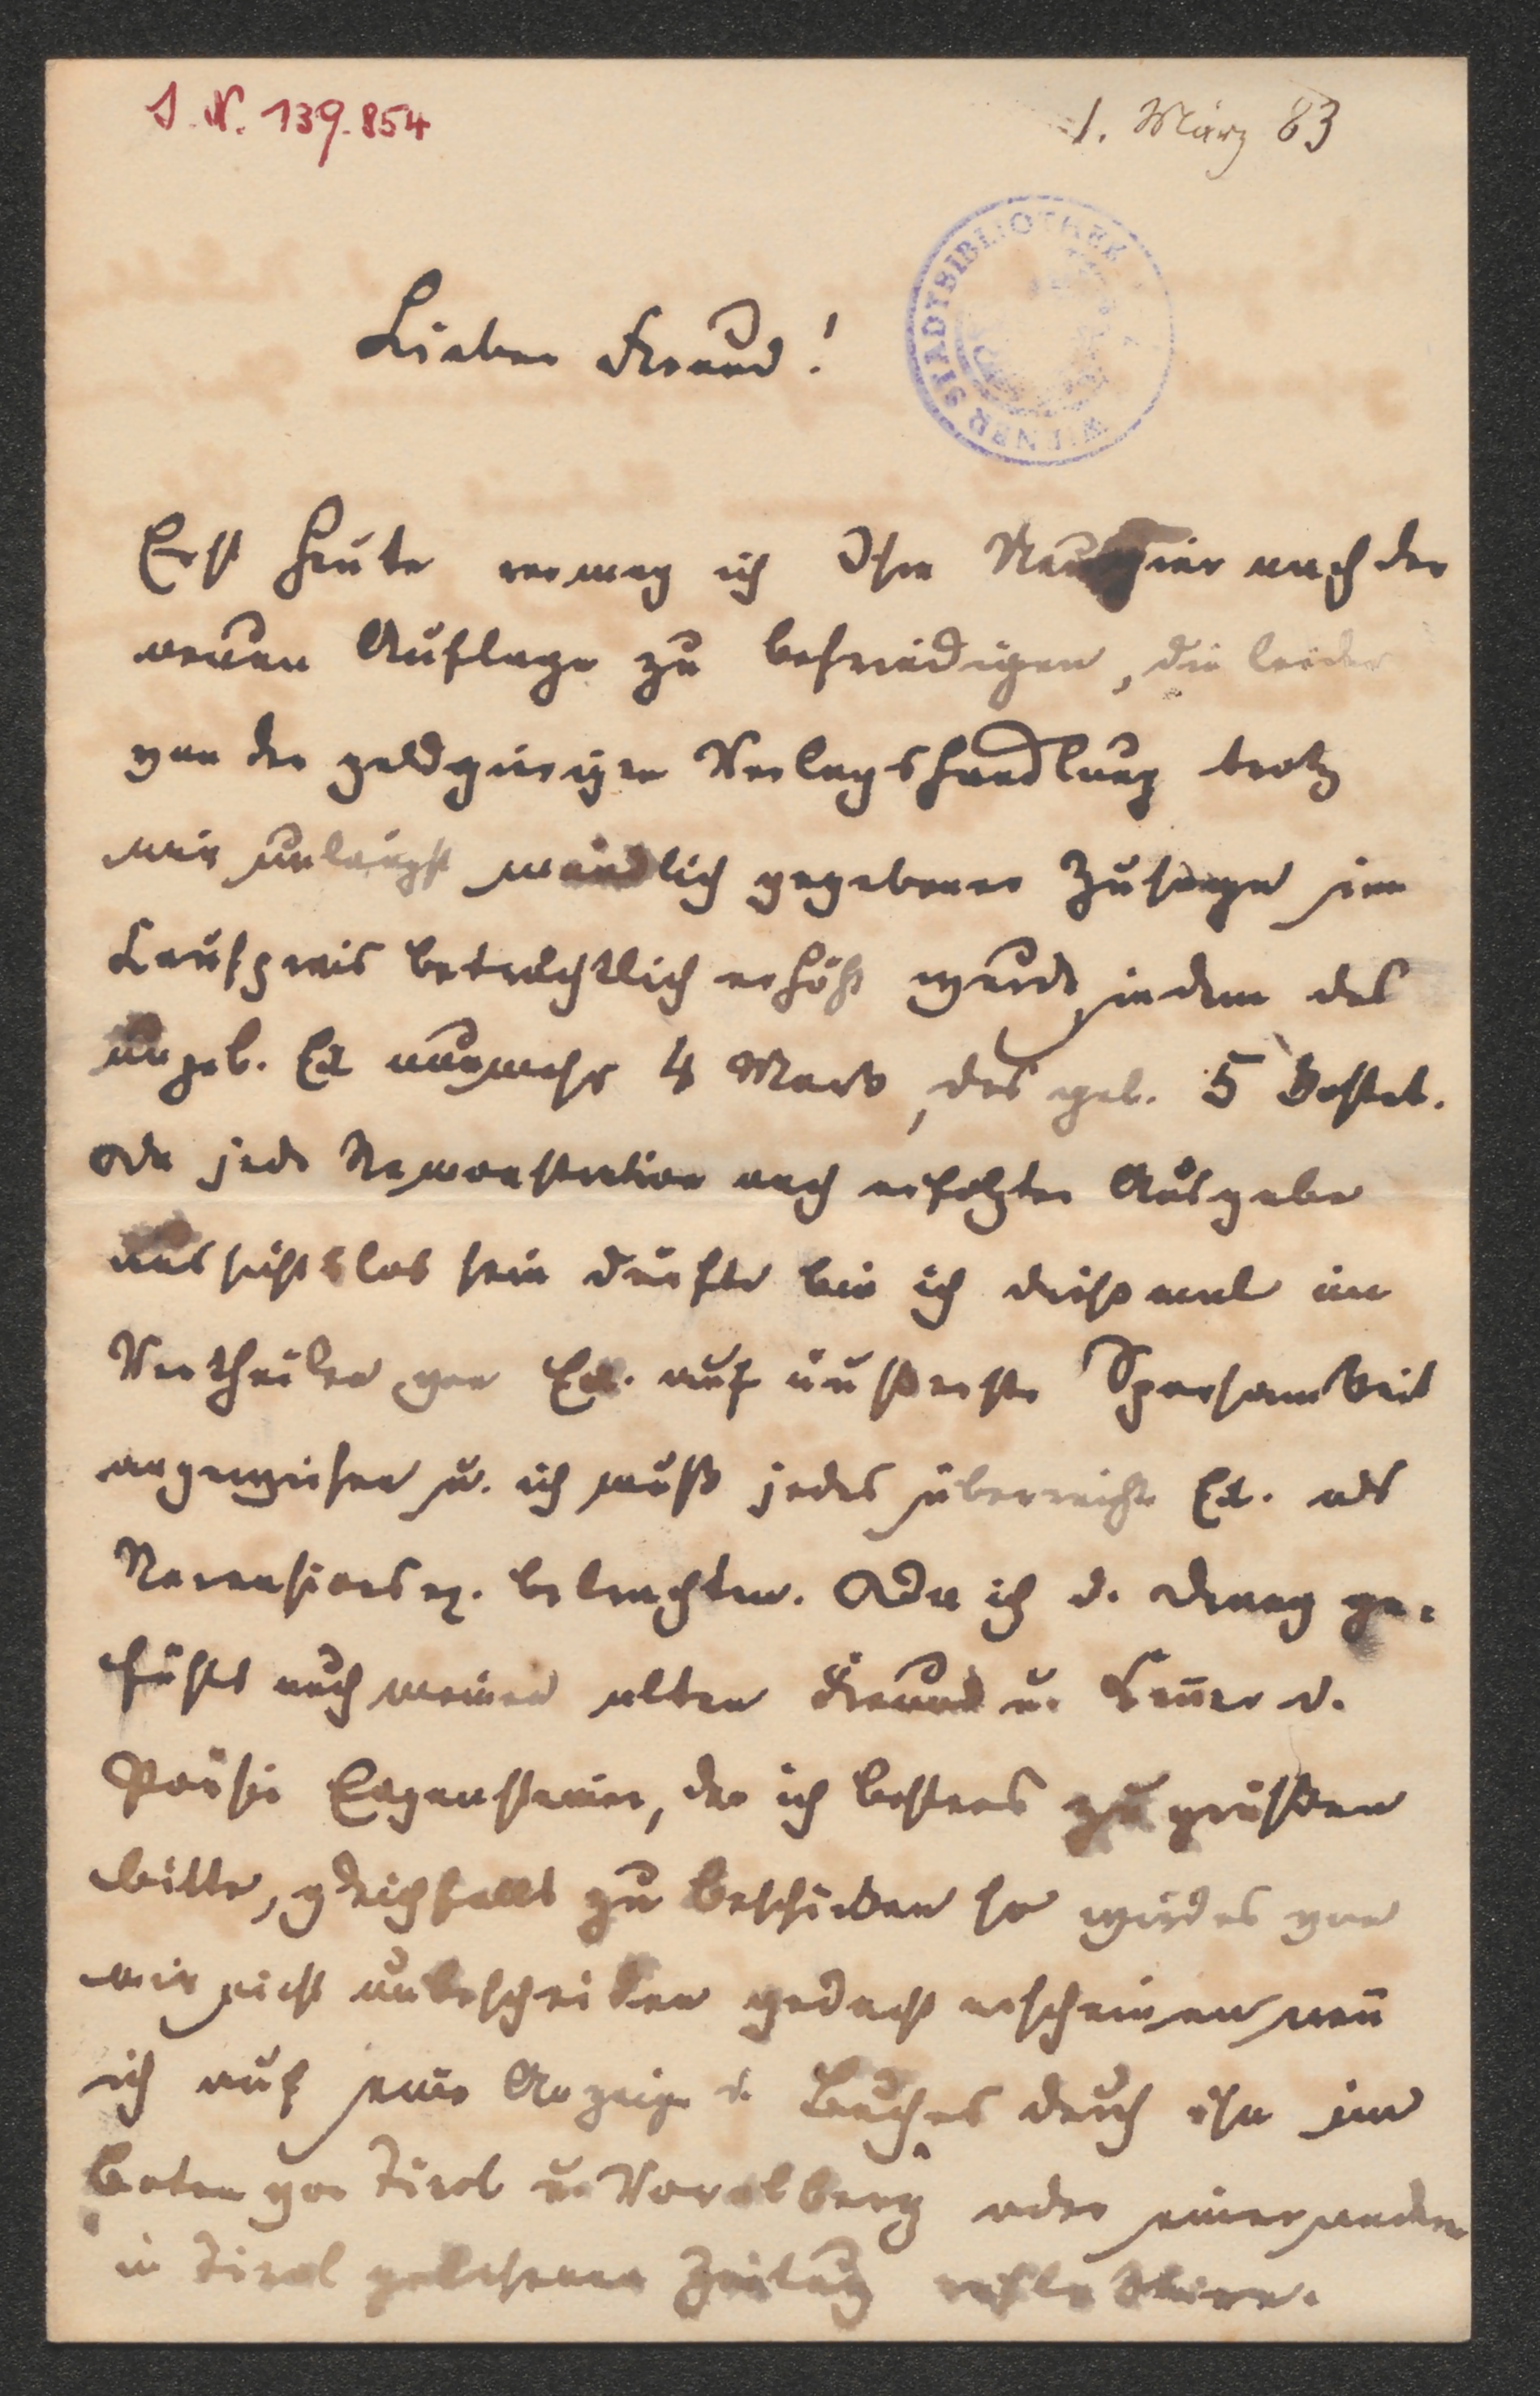 I. N. 139.854
1. März 83
WIENER STADTBIBLIOTHEK
Lieber Freund!
Erst heute vermag ich Ihre Neugier nach der
neuen Auflage zu befriedigen, die leider
von der geldgierigen Verlagshandlung trotz
mir unlängst mündlich gegebener Zusage im
Kaufpreis beträchtlich erhöht wurde, indem das
ungeb. Ex nunmehr 4 Mark, das geb. 5 kostet.
Da jede Remonstration nach erfolgter Ausgabe
aussichtslos sein dürfte bin ich dießmal im
Vertheilen von Ex. auf äußerste Sparsamkeit
angewiesen u. ich muß jedes überreichte Ex. als
Recensionsex. betrachten. Da ich d. Drang ge-
fühlt auch meinen alten Freund u. Kenner d.
Poësie, den ich bestens zu grüßen
bitte, gleichfalls zu beschicken so wird es von
mir nicht unbescheiden gedacht erscheinen wenn
ich auf eine Anzeige d. Buches durch ihn im
Boten von Tirol u. Vorarlberg oder einer andern
in Tirol gelesenen Zeitung reflektiere.